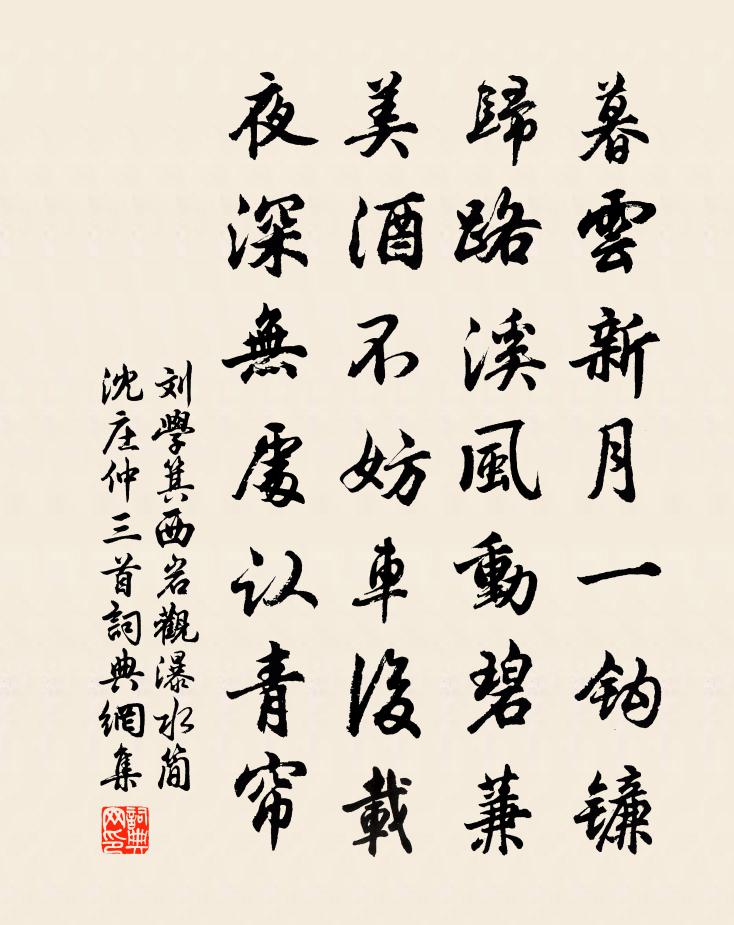 暮雲新月一鈎鐮
歸路溪風動碧蒹
美酒不妨車後載
夜深無處认青帘
刘學箕西岩觀瀑水簡
沈庄仲三首詞典網集
詞典網印